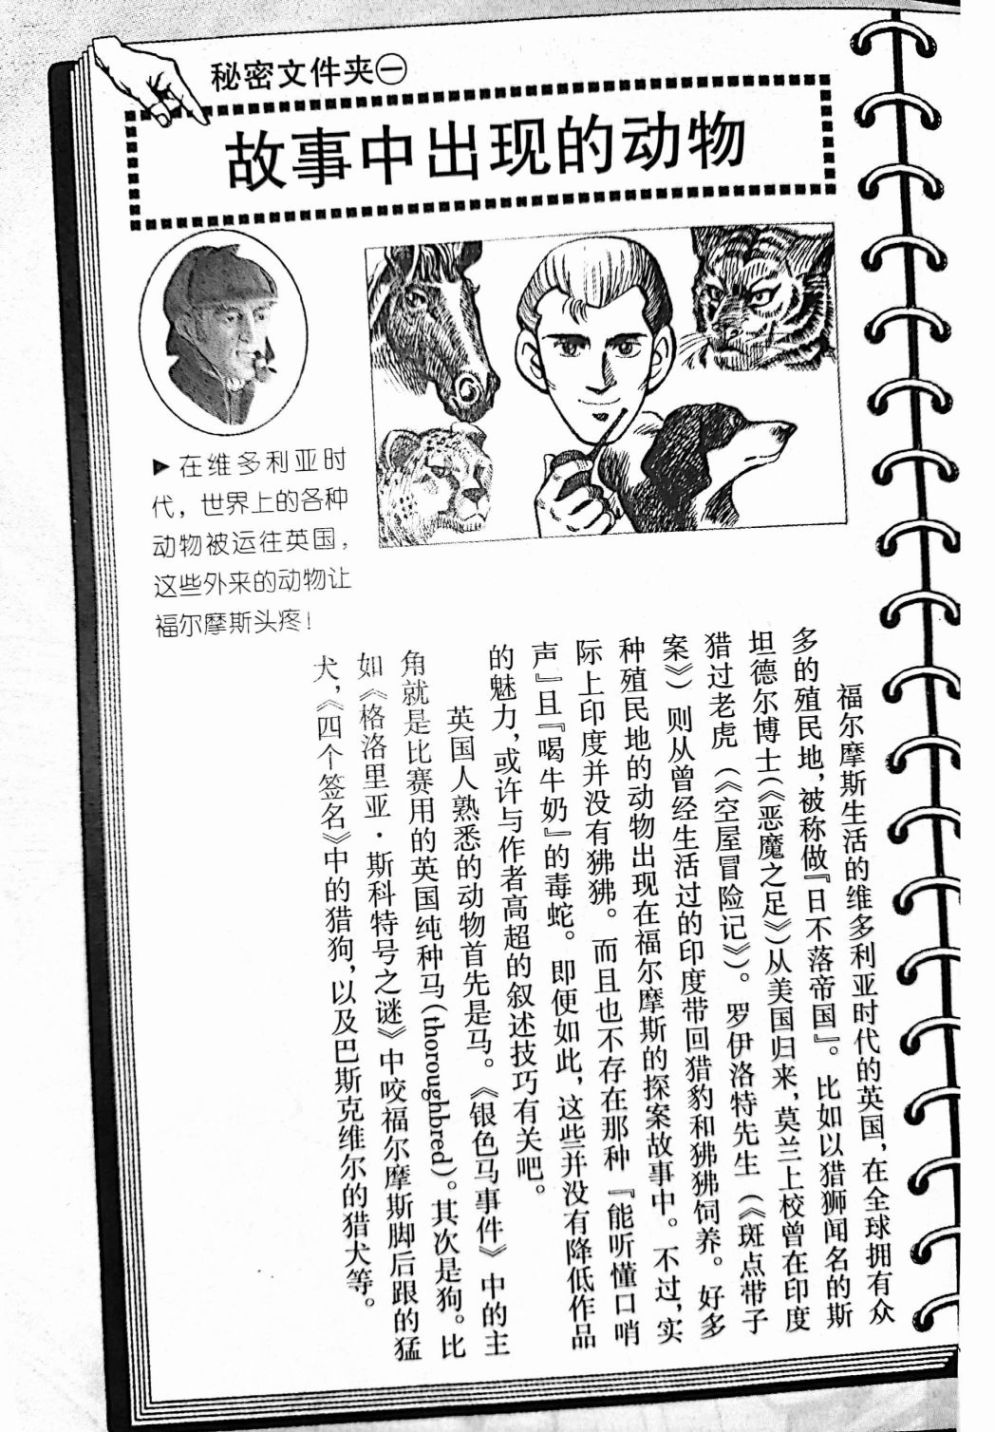 秘密文件夹㊀
故事中出现的动物
▶在维多利亚时
代，世界上的各种
动物被运往英国，
这些外来的动物让
福尔摩斯头疼！
福尔摩斯生活的维多利亚时代的英国，在全球拥有众
多的殖民地，被称做『日不落帝国』。比如以猎狮闻名的斯
坦德尔博士（《恶魔之足》）从美国归来，莫兰上校曾在印度
猎过老虎（《空屋冒险记》）。罗伊洛特先生（《斑点带子
案》）则从曾经生活过的印度带回猎豹和狒狒饲养。好多
种殖民地的动物出现在福尔摩斯的探案故事中。不过，实
际上印度并没有狒狒。而且也不存在那种『能听懂口哨
声』且『喝牛奶』的毒蛇。即便如此，这些并没有降低作品
的魅力，或许与作者高超的叙述技巧有关吧。
英国人熟悉的动物首先是马。《银色马事件》中的主
角就是比赛用的英国纯种马（thoroughbred）。其次是狗。比
如《格洛里亚·斯科特号之谜》中咬福尔摩斯脚后跟的猛
犬，《四个签名》中的猎狗，以及巴斯克维尔的猎犬等。